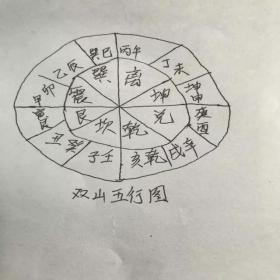 巽巳
丙午
丁未
坤申
庚酉
戌辛
亥乾
子壬
丑癸
寅艮
甲卯
乙辰
巽
离
坤
兑
乾
坎
艮
震
双山五行图